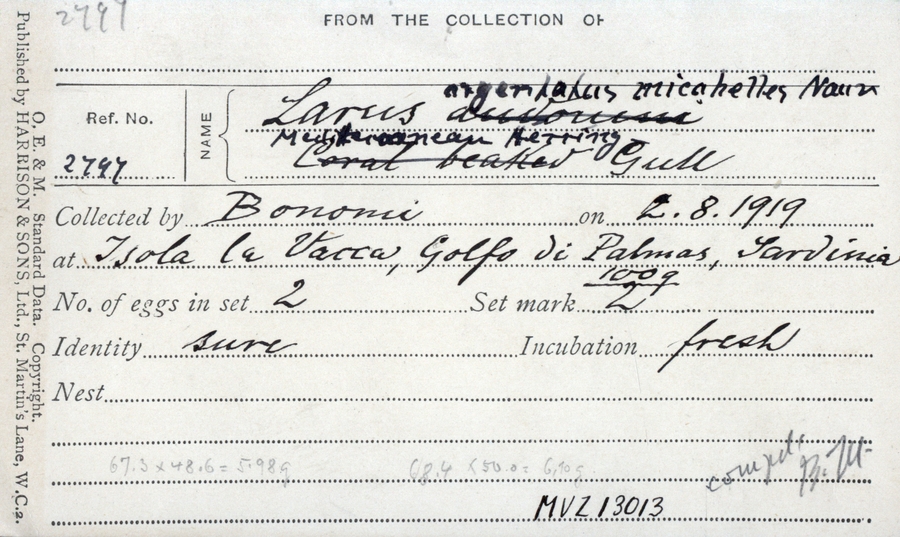 2797
FROM THE COLLECTION OF
Ref. No.
2797
NAME
argentatus micahelles Naum
Larus audouini
Mediterranean Herring
Coral beaked Gull
Collected by Bonomi on 2.8.1919
at Isola la Vacca, Golfo di Palmas, Sardinia
No. of eggs in set 2 Set mark 100g/2
Identity sure Incubation fresh
Nest
67.3 x 48.6 = 5.98g 68.4 x 50.0 = 6.10g
MVZ 13013
O. E. & M. Standard Data. Copyright.
Published by HARRISON & SONS, Ltd., St. Martin's Lane, W.C.2.